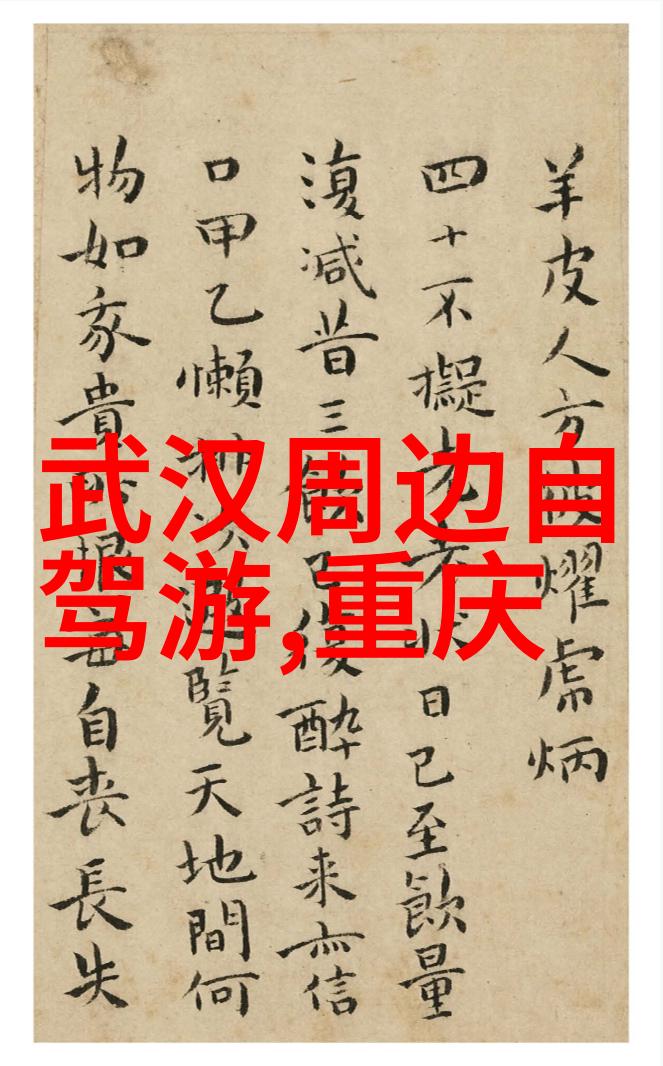 武汉周边自
驾游,重庆
羊皮人方燿虎炳
四十不擬日已至飲量
復減昔三已後醉詩来亦信
口甲乙懶覽天地間何
物如亥貴自喪長失